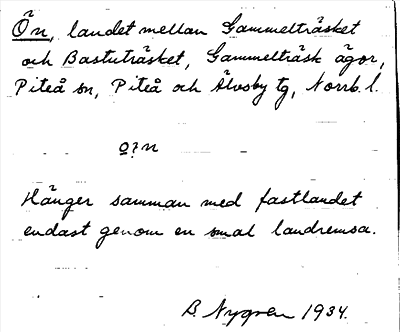 Ön, landet mellan Gammelträsket
och Bastuträsket, Gammelträsk ägor,
Piteå sn, Piteå och Älvsby tg, Norrb. l.
Hänger samman med fastlandet
endast genom en smal landremsa.
B. Nygren 1934.